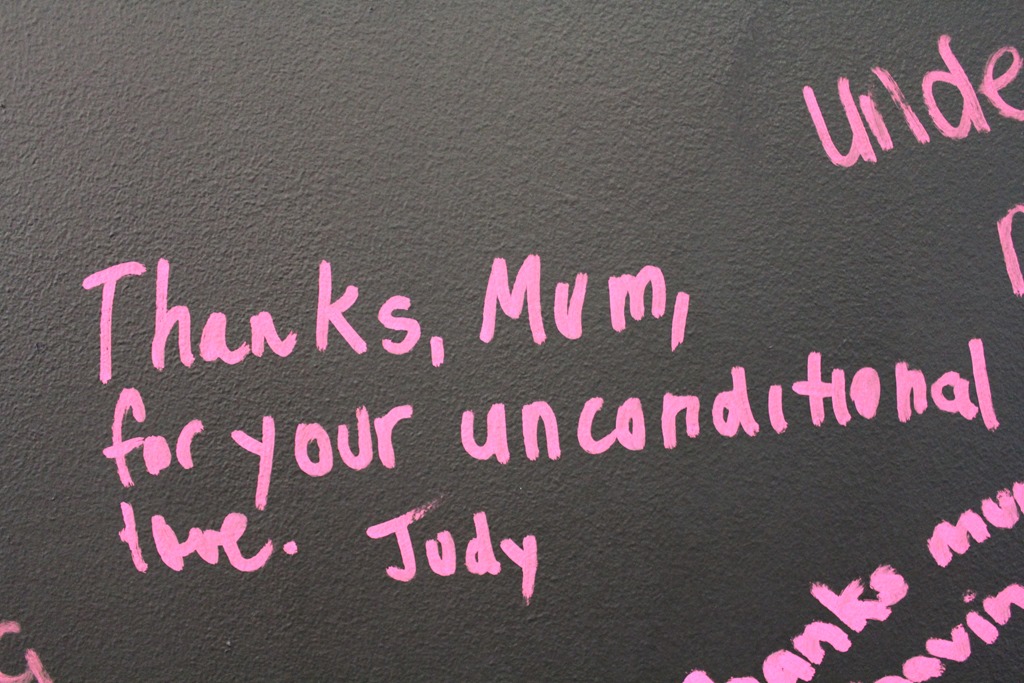 Unde
Thanks, Mum,
for your unconditional
love. Judy
anks mu
avin